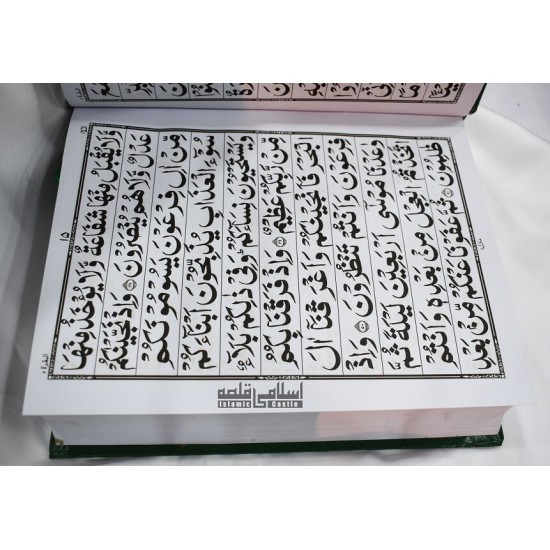 ١٥
وَلَا يُقْبَلُ مِنْهَا شَفَاعَةٌ وَّلَا يُؤْخَذُ مِنْهَا
عَدْلٌ وَّلَا هُمْ يُنْصَرُوْنَ ﴿٤٨﴾ وَاِذْ نَجَّيْنٰكُمْ
مِّنْ اٰلِ فِرْعَوْنَ يَسُوْمُوْنَكُمْ
سُوْٓءَ الْعَذَابِ يُذَبِّحُوْنَ اَبْنَآءَكُمْ
وَيَسْتَحْيُوْنَ نِسَآءَكُمْ وَفِيْ ذٰلِكُمْ بَلَآءٌ
مِّنْ رَّبِّكُمْ عَظِيْمٌ ﴿٤٩﴾ وَاِذْ فَرَقْنَا بِكُمُ
الْبَحْرَ فَاَنْجَيْنٰكُمْ وَاَغْرَقْنَآ اٰلَ
فِرْعَوْنَ وَاَنْتُمْ تَنْظُرُوْنَ ﴿٥٠﴾ وَاِذْ
وٰعَدْنَا مُوْسٰٓى اَرْبَعِيْنَ لَيْلَةً ثُمَّ
اتَّخَذْتُمُ الْعِجْلَ مِنْۢ بَعْدِهٖ وَاَنْتُمْ
ظٰلِمُوْنَ ﴿٥١﴾ ثُمَّ عَفَوْنَا عَنْكُمْ مِّنْۢ بَعْدِ
اسلامی قلعہ
Islamic Castle